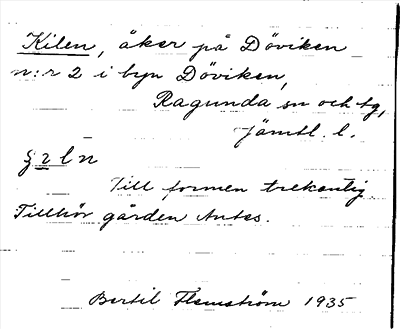 Kilen, åker på Döviken
n:r 2 i byn Döviken,
Ragunda sn och tg,
Jämtl. l.
Till formen trekantig.
Tillhör gården Antes.
Bertil Flemström 1935